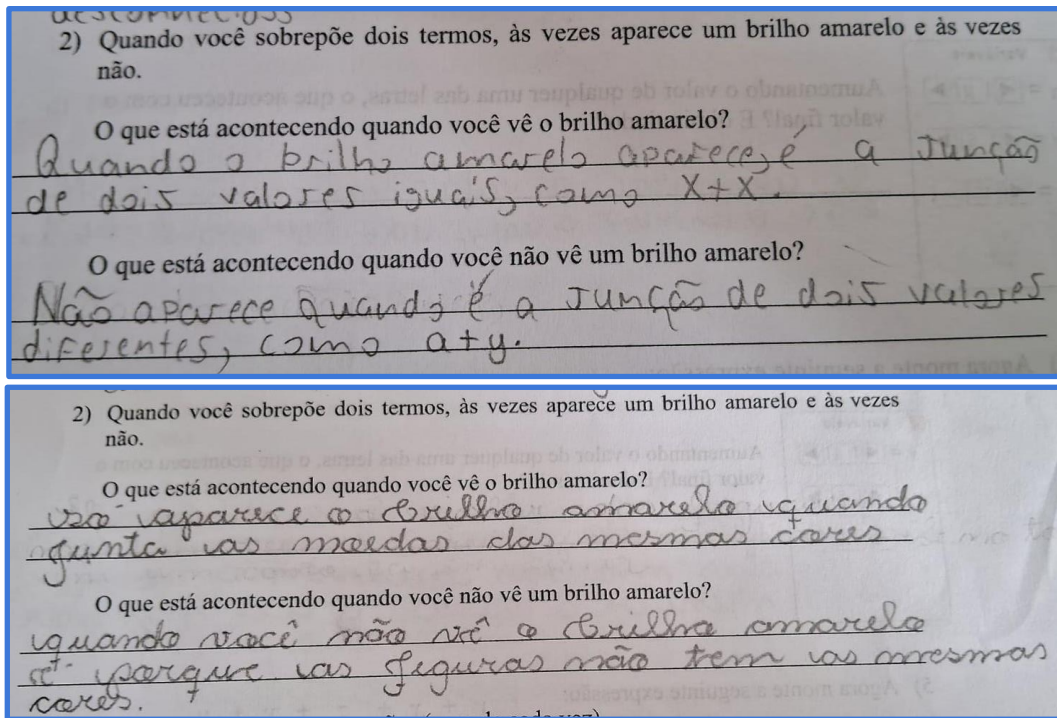 desconhecidos
2) Quando você sobrepõe dois termos, às vezes aparece um brilho amarelo e às vezes
não.
O que está acontecendo quando você vê o brilho amarelo?
Quando o brilho amarelo aparece, é a Junção
de dois valores iguais, como X+X.
O que está acontecendo quando você não vê um brilho amarelo?
Não aparece quando é a Junção de dois valores
diferentes, como a+y.
2) Quando você sobrepõe dois termos, às vezes aparece um brilho amarelo e às vezes
não.
O que está acontecendo quando você vê o brilho amarelo?
aparece o brilho amarelo quando
junta as moedas das mesmas cores
O que está acontecendo quando você não vê um brilho amarelo?
quando você não vê o brilho amarelo
é porque as figuras não tem as mesmas
cores.